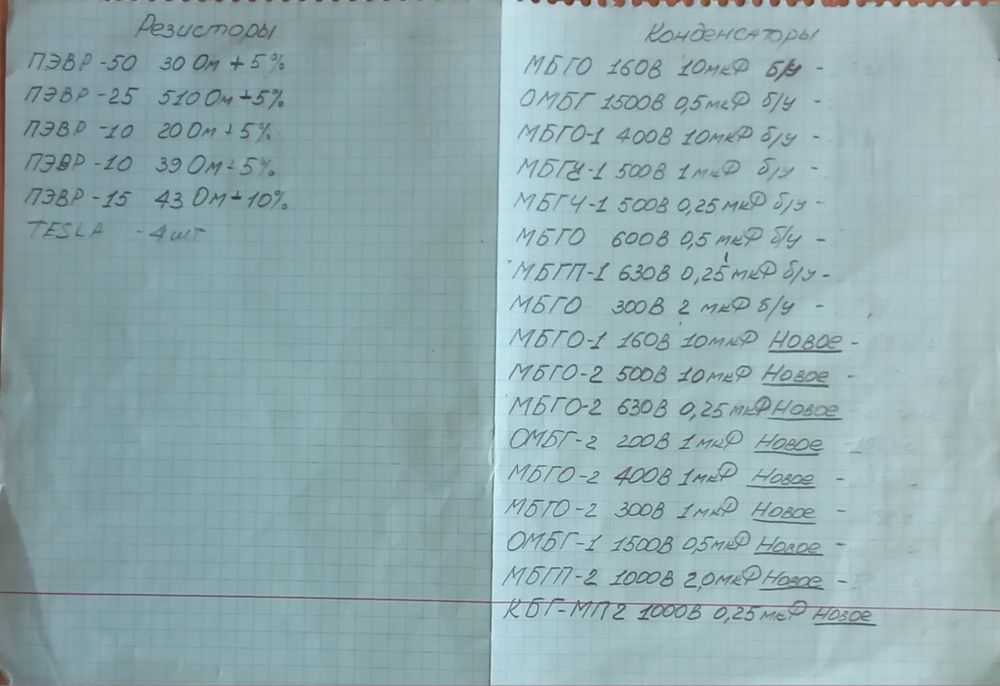 Резисторы
ПЭВР-50 30 Ом ± 5%
ПЭВР-25 510 Ом ± 5%
ПЭВР-10 20 Ом ± 5%
ПЭВР-10 39 Ом ± 5%
ПЭВР-15 43 Ом ± 10%
TESLA - 4 шт
Конденсаторы
МБГО 160В 10мкФ б/у -
ОМБГ 1500В 0,5мкФ б/у -
МБГО-1 400В 10мкФ б/у -
МБГЧ-1 500В 1мкФ б/у -
МБГЧ-1 500В 0,25мкФ б/у -
МБГО 600В 0,5мкФ б/у -
МБГП-1 630В 0,25мкФ б/у -
МБГО 300В 2 мкФ б/у -
МБГО-1 160В 10мкФ Новое -
МБГО-2 500В 10мкФ Новое -
МБГО-2 630В 0,25мкФ Новое
ОМБГ-2 200В 1мкФ Новое -
МБГО-2 400В 1мкФ Новое -
МБГО-2 300В 1мкФ Новое -
ОМБГ-1 1500В 0,5мкФ Новое -
МБГП-2 1000В 2,0мкФ Новое -
КБГ-МП2 1000В 0,25мкФ Новое